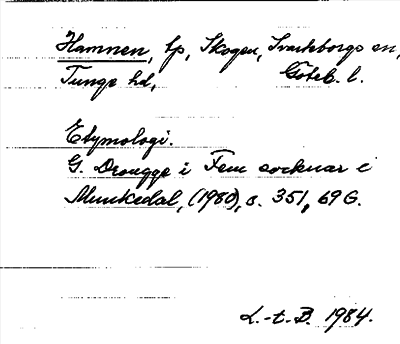 Hamnen, lp, Skogen, Svarteborgs sn,
Tunge hd, Göteb. l.
Etymologi.
G. Drougge i Fem socknar i
Munkedal, (1980), s. 351, 69 G.
L.-t. B. 1984.